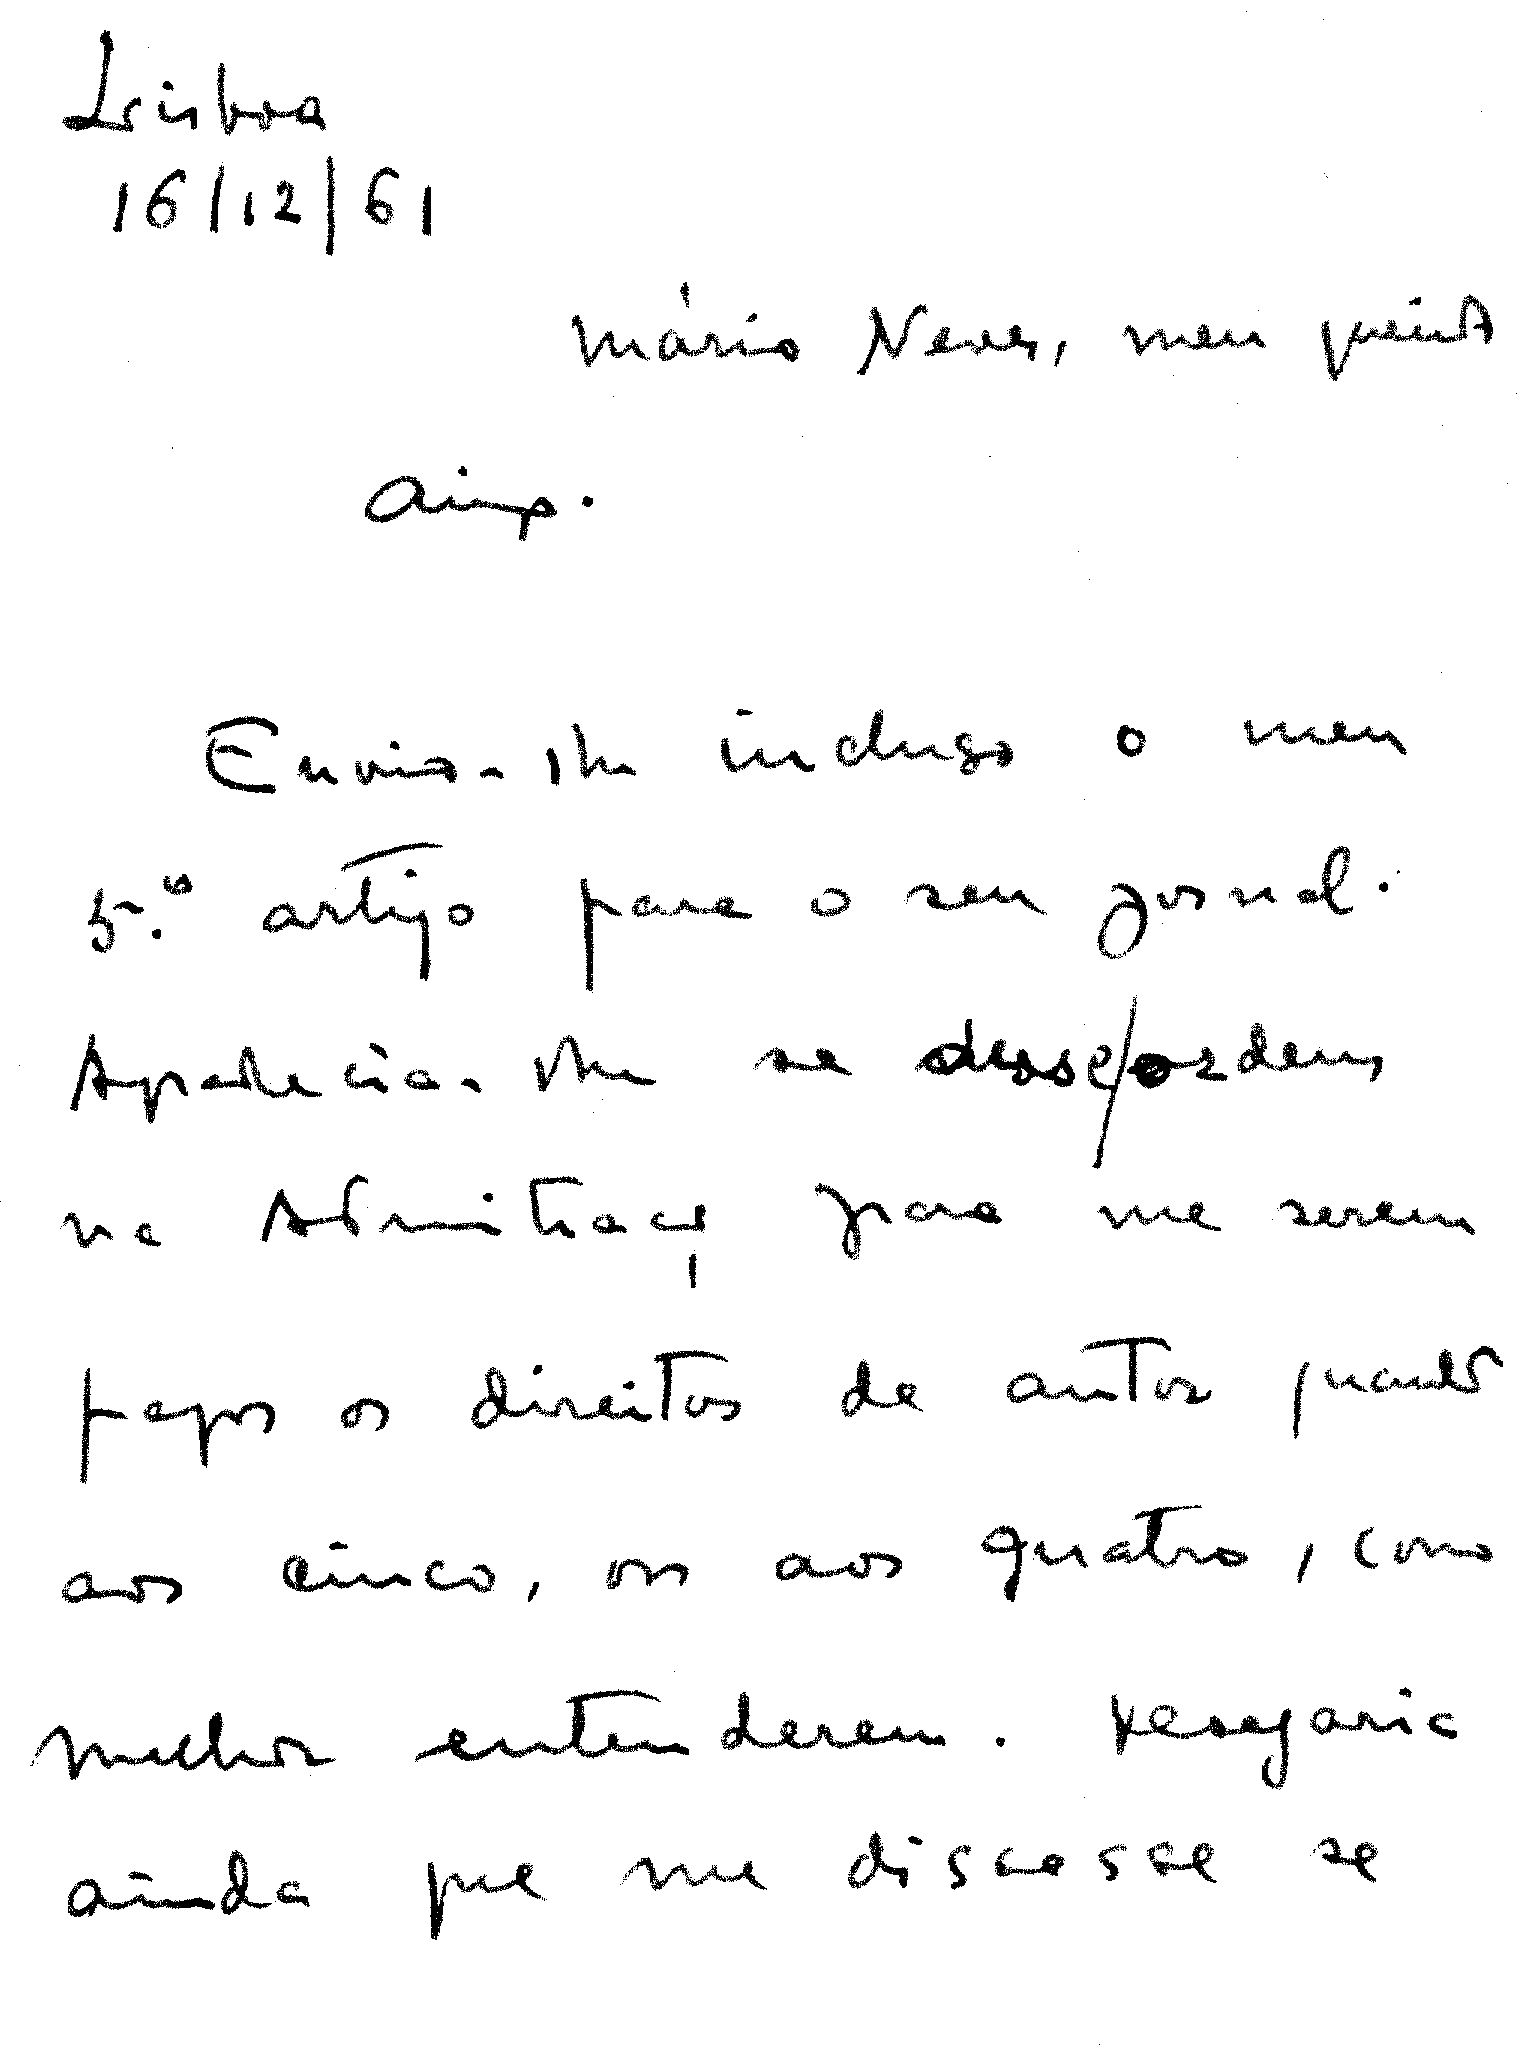 Lisboa
16/12/61
Mário Neves, meu querido
amigo.
Envio-lhe incluso o meu
5.º artigo para o seu jornal.
Agradecia-lhe se desse/ordens
na Administração para me serem
pagos os direitos de autor quando
aos cinco, ou aos quatro, como
melhor entenderem. Desejaria
ainda que me dissesse se